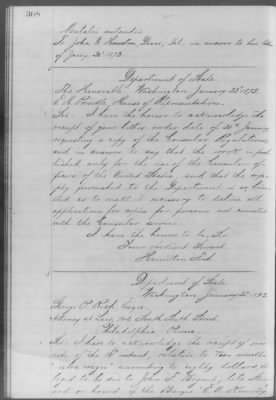 308
Mutatis mutandis
To John W. Houston, Dover, Del. in answer to his letter
of Jany. 20' 1873.
Department of State
Washington January 22d 1873.
The Honorable
House of Representatives.
Sir: I have the honor to acknowledge the
receipt of your letter under date of 20th January
requesting a copy of the Consular Regulations,
and in answer to say that the work is pub-
lished only for the use of the Consular Of-
ficers of the United States, and that the sup-
ply furnished to the Department is so lim-
ited as to make it necessary to decline all
applications for copies for persons not connected
with the Consular service.
I have the honor to be, Sir,
Your obedient Servant
Hamilton Fish
Department of State
Washington January 22d 1873
George P. Rich, Esquire
Attorney at Law, 142 South Sixth Street
Philadelphia Penna.
Sir: I have to acknowledge the receipt of your
note of the 18th instant, relative to two months'
extra wages amounting to eighty dollars al-
leged to be due to John S. Bryant, late stew-
ard on board of the Barque "C. A. Kennedy